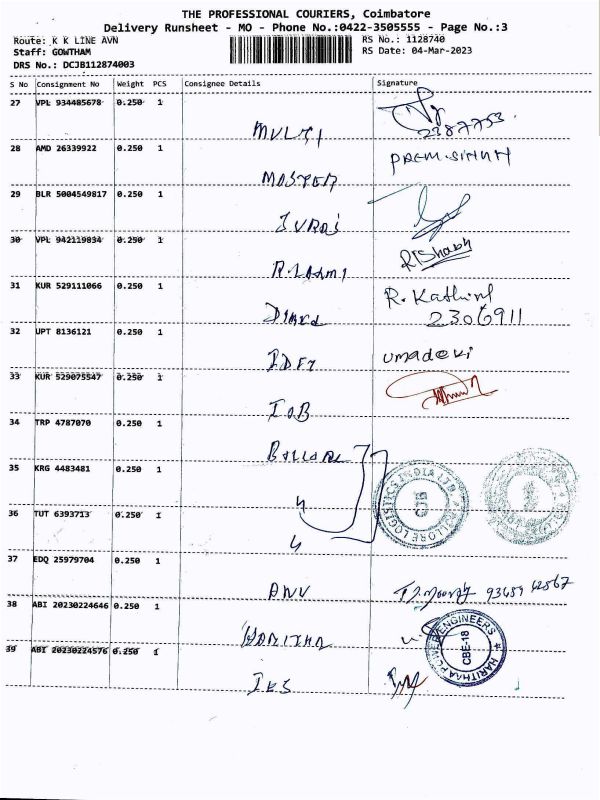 THE PROFESSIONAL COURIERS, Coimbatore
Delivery Runsheet - MO - Phone No.:0422-3505555 - Page No.:3
Route: K K LINE AVN
RS No.: 1128740
Staff: GOWTHAM
RS Date: 04-Mar-2023
DRS No.: DCJB112874003
S No Consignment No Weight PCS Consignee Details Signature
27 VPL 934485678 0.250 1
MULTI 2387753
28 AMD 26339922 0.250 1 PREM.SINGH
MASTER
29 BLR 5004549817 0.250 1
SURAJ
30 VPL 942119834 0.250 1
R.LAXMI
31 KUR 529111066 0.250 1 R.
2306911
32 UPT 8136121 0.250 1 umadevi
33 KUR 529075547 0.250 1
IOB
34 TRP 4787070 0.250 1
35 KRG 4483481 0.250 1
LOGISTICS INDIA LTD. CJB
36 TUT 6393713 0.250 1
37 EDQ 25979704 0.250 1
ANU
38 ABI 20230224646 0.250 1
HARITHA
HARITHAA POWER ENGINEERS CBE-18
39 ABI 20230224576 0.250 1